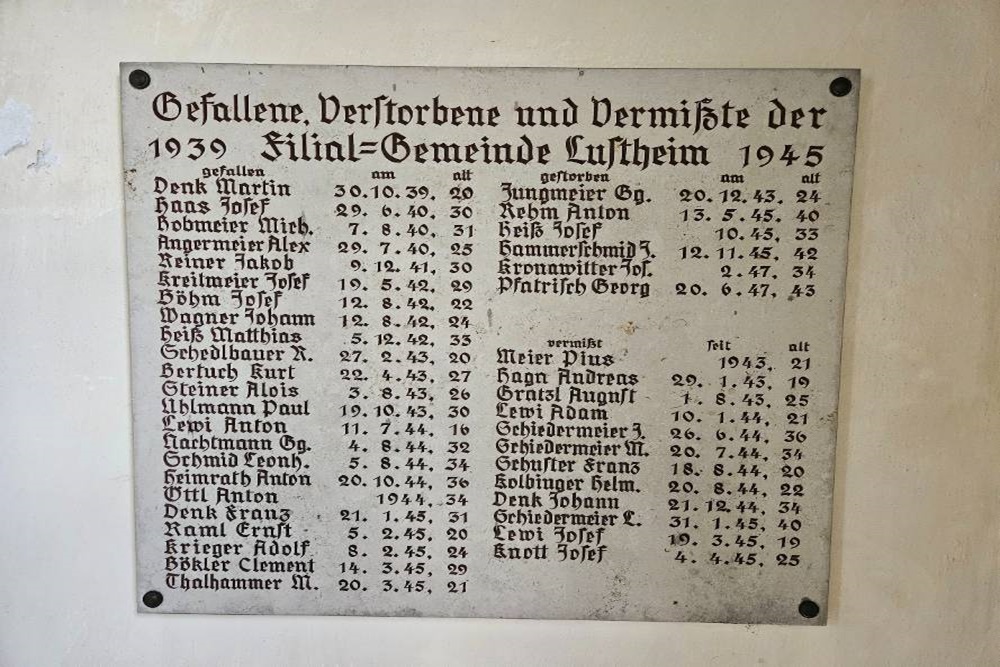 Gefallene, Verstorbene und Vermißte der
1939 Filial=Gemeinde Lustheim 1945
gefallen am alt
Denk Martin 30.10.39, 20
Haas Josef 29. 6.40, 30
Bobmeier Mich. 7. 8.40, 31
Angermeier Alex 29. 7.40, 25
Reiner Jakob 9.12.41, 30
Kreilmeier Josef 19. 5.42, 29
Böhm Josef 12. 8.42, 22
Wagner Johann 12. 8.42, 24
Heiß Matthias 5.12.42, 33
Schedlbauer R. 27. 2.43, 20
Bertuch Kurt 22. 4.43, 27
Steiner Alois 3. 8.43, 26
Uhlmann Paul 19.10.43, 30
Lewi Anton 11. 7.44, 16
Nachtmann Gg. 4. 8.44, 32
Schmid Leonh. 5. 8.44, 34
Heimrath Anton 20.10.44, 36
Öttl Anton 1944, 34
Denk Franz 21. 1.45, 31
Raml Ernst 5. 2.45, 20
Krieger Adolf 8. 2.45, 24
Bökler Clement 14. 3.45, 29
Thalhammer M. 20. 3.45, 21
gestorben am alt
Jungmeier Gg. 20.12.43, 24
Rehm Anton 13. 5.45, 40
Heiß Josef 10.45, 33
Hammerschmid J. 12.11.45, 42
Kronawitter Jos. 2.47, 34
Pfatrisch Georg 20. 6.47, 43
vermißt seit alt
Meier Pius 1943, 21
Hagn Andreas 29. 1.43, 19
Gratzl August 1. 8.43, 25
Lewi Adam 10. 1.44, 21
Schiedermeier J. 26. 6.44, 36
Schiedermeier M. 20. 7.44, 34
Schuster Franz 18. 8.44, 20
Kolbinger Helm. 20. 8.44, 22
Denk Johann 21.12.44, 34
Schiedermeier L. 31. 1.45, 40
Lewi Josef 19. 3.45, 19
Knott Josef 4. 4.45, 25